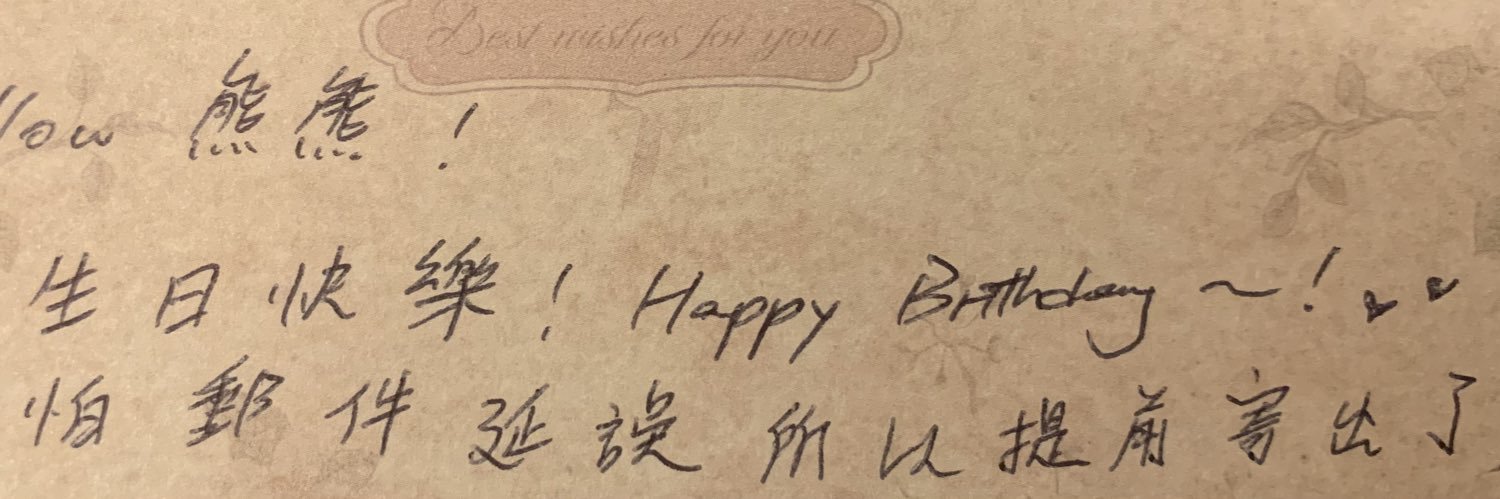 Best wishes for you
熊熊!
生日快樂! Happy Birthday~!
怕郵件延誤所以提前寄出了